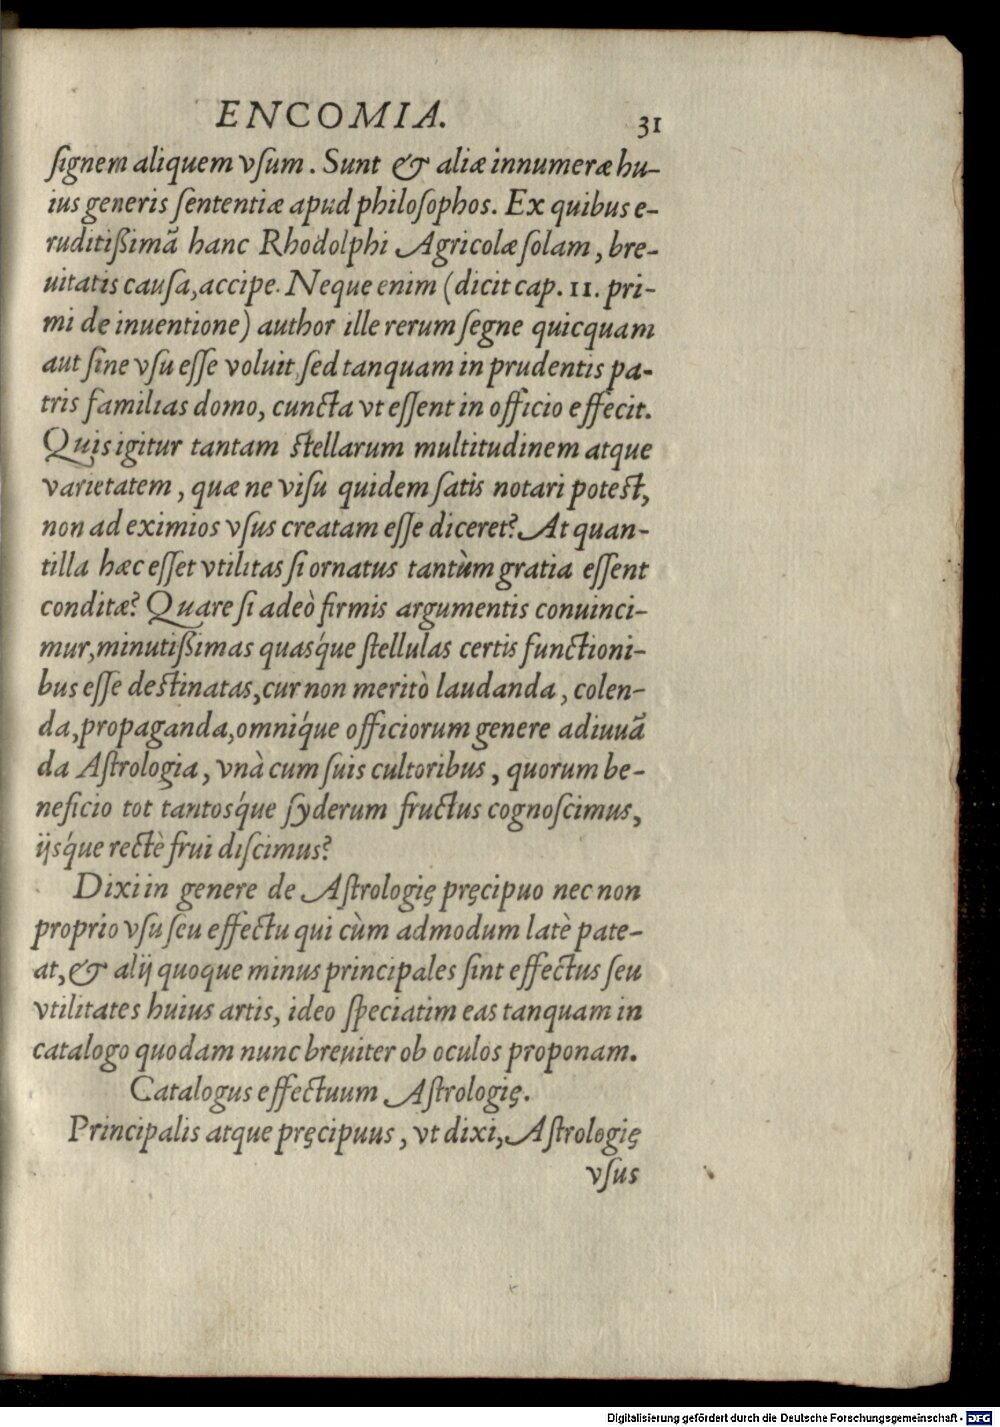 ENCOMIA. 31
ſignem aliquem vſum. Sunt & aliæ innumeræ hu-
ius generis ſententiæ apud philoſophos. Ex quibus e-
ruditiſſimā hanc Rhodolphi Agricolæ ſolam, bre-
uitatis cauſa, accipe. Neque enim (dicit cap. 11. pri-
mi de inuentione) author ille rerum ſegne quicquam
aut ſine vſu eſſe voluit, ſed tanquam in prudentis pa-
tris familias domo, cuncta vt eſſent in officio effecit.
Quis igitur tantam ſtellarum multitudinem atque
varietatem, quæ ne viſu quidem ſatis notari poteſt,
non ad eximios vſus creatam eſſe diceret? At quan-
tilla hæc eſſet vtilitas ſi ornatus tantùm gratia eſſent
conditæ? Quare ſi adeò firmis argumentis conuinci-
mur, minutiſſimas quasq́ue ſtellulas certis functioni-
bus eſſe deſtinatas, cur non meritò laudanda, colen-
da, propaganda, omniq́ue officiorum genere adiuuā
da Aſtrologia, vnà cum ſuis cultoribus, quorum be-
neficio tot tantosq́ue ſyderum fructus cognoſcimus,
ijsq́ue rectè frui diſcimus?
Dixi in genere de Aſtrologię pręcipuo nec non
proprio vſu ſeu effectu qui cùm admodum latè pate-
at, & alij quoque minus principales ſint effectus ſeu
vtilitates huius artis, ideo ſpeciatim eas tanquam in
catalogo quodam nunc breuiter ob oculos proponam.
Catalogus effectuum Aſtrologię.
Principalis atque pręcipuus, vt dixi, Aſtrologię
vſus
Digitalisierung gefördert durch die Deutsche Forschungsgemeinschaft - DFG